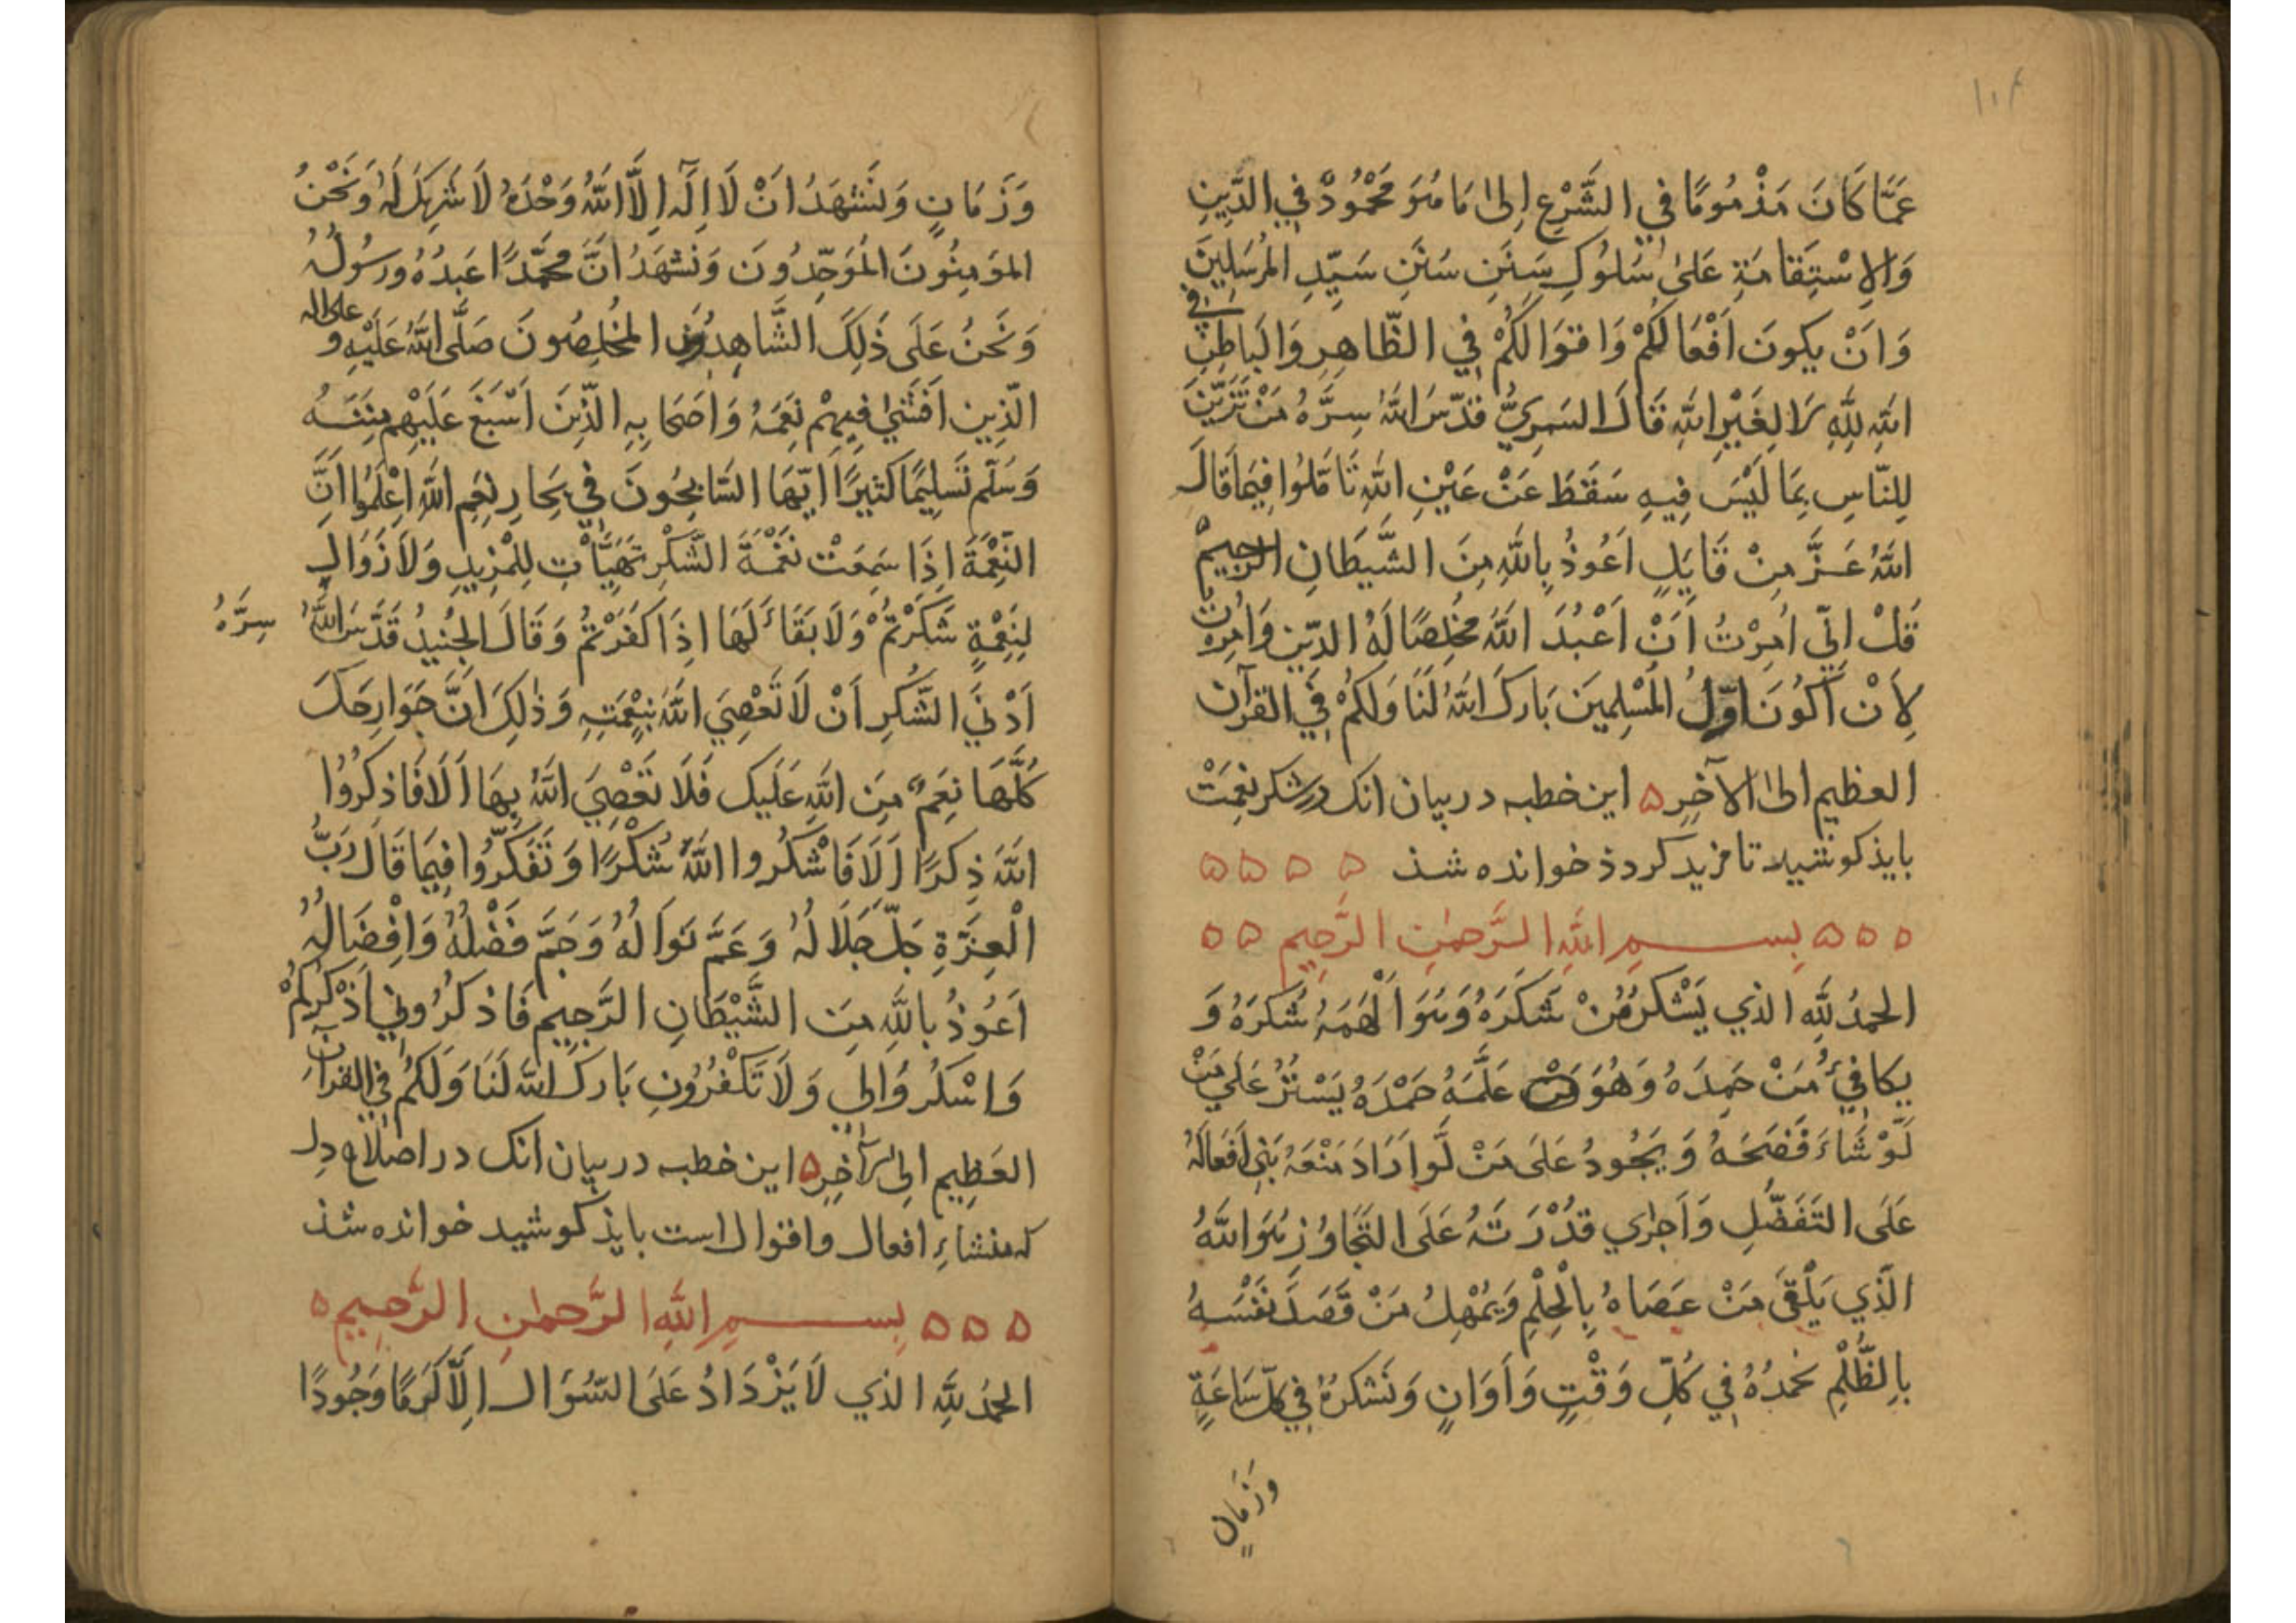 ١٠٤
عَمَّا كَانَ مَذْمُومًا فِي الشَّرْعِ اِلىٰ مَا هُوَ مَحْمُودٌ فِي الدِّينِ
وَالِاسْتِقَامَةِ عَلىٰ سُلُوكِ سَنَنِ سُنَنِ سَيِّدِ المُرْسَلِينَ
وَاَنْ يَكونَ اَفْعَالُكُمْ وَاقوَالُكُمْ فِي الظّاهِرِ وَالبَاطِنِ فِي
اللهِ لِلّٰهِ لَا لِغَيْرِ اللهِ قَالَ السَّرِيُّ قدّسَ اللهُ سِرَّهُ مَنْ تَزَيَّنَ
لِلنّاسِ بِمَا لَيْسَ فِيهِ سَقَطَ عَنْ عَيْنِ اللهِ تَأمَّلُوا فِيمَا قَالَ
اللهُ عَزَّ مِنْ قَايِلٍ اَعُوذُ بِاللهِ مِنَ الشَّيطَانِ الرجيمْ
قُلْ اِنِّي اُمِرْتُ اَنْ اَعْبُدَ اللهَ مُخْلِصًا لَهُ الدِّين وَاُمِرْتُ
لِاَنْ اَكُونَ اوّلَ المُسْلِمينَ بَارَكَ اللهُ لَنَا وَلكُمْ فِي القرآن
العظيم اِلىٰ الآخِرِ ه اين خطبه در بيان انک در شكر نعِمَتْ
بايذ كوشيد تا مزيد كردذ خوانده شذ ه ه ه ه
ه ه ه بِسـمِ اللهِ الرَّحمٰنِ الرَّحِيم ه ه
الحمدُ لِلّٰهِ الذي يَشْكرُ مَنْ شَكَرَهُ وَهُوَ اَلْهَمَهُ شُكرَهُ وَ
يكافِئُ مَنْ حَمِدَهُ وَهُوَ عَلَّمَهُ حَمْدَهُ يَسْتُرُ عَلي مَنْ
لَوْ شَاءَ فَضَحَهُ وَيَجُودُ عَلَى مَنْ لَّو اَرَادَ مَنْعَهُ بَنى اَفعَالَهُ
عَلَى التَفَضُّلِ وَاَجرٰي قدُْرَتَهُ عَلَى التَجَاوُزِ هُوَ اللهُ
الَّذي يَلْقىَ مَنْ عَصَاهُ بِالْحِلْمِ وَيُمْهِلُ مَنْ قَصَدَ نَفْسَهُ
بِالظُّلْمِ نحمدُهُ فِي كُلِّ وَقْتٍ وَاَوَانٍ وَنَشكرُهُ فِي كلّ سَاعَةٍ
وَزَمَانٍ
وَزَمَانٍ وَنَشْهَدُ اَنْ لَا اِلٰهَ اِلَّا اللهُ وَحْدَهُ لَا شَرِيكَ لَهُ وَنَحْنُ
المؤمِنُونَ المُوَحِّدُونَ وَنَشهَدُ اَنَّ مُحَمَّدًا عَبدُهُ وَرَسُولُهُ
وَنَحنُ عَلَى ذَلِكَ الشَّاهِدُونَ المُخلِصُونَ صَلَّى اللهُ عَلَيْهِ وَ على اله
الّذِين اَفشٰي فِيهِمْ نِعَمَهُ وَاَصحَابِهِ الّذِينَ اَسْبَغَ عَلَيْهِم مِنَنَهُ
وَسَلّم تَسلِيمًا كثيرًا اَيّهَا السَّابِحُونَ في بِحَارِ نِعَمِ اللهِ اِعْلَمُوا اَنَّ
النِّعْمَةَ اِذَا سَمِعَتْ نَغْمَةَ الشُّكْرِ تَهَيَّأَتْ لِلمْزِيدِ وَلَا زَوَالَ
لِنِعْمَةٍ شَكَرْتُمْ وَلَا بَقَاءَ لَهَا اِذَا كَفَرْتُمْ وَقَالَ الجُنيدُ قَدَّسَ اللهُ سِرَّهُ
اَدْنَي الشُّكرِ اَنْ لَا تَعْصِيَ اللهَ بِنِعْمَتِهِ وَذٰلِكَ انَّ جَوَارِحَكَ
كُلَّهَا نِعَمٌ مِنَ اللهِ عَلَيك فَلَا تَعْصِيَ اللهَ بِهَا اَلَا فَاذكِرُوا
اللهَ ذِكرًا اَلَا فَاشْكُروا اللهَ شُكْرًا وَتَفَكَّرُوا فِيمَا قَالَ رَبُّ
الْعِزَّةِ جَلّ جَلَالُهُ وَعَمَّ نَوَالُهُ وَجَمَّ فَضْلُهُ وَاِفْضَالُهُ
اَعُوذُ بِاللهِ مِنَ الشَّيْطَانِ الرَّجِيم فَاذكرُونِي اَذْكُركُمْ
وَاشكُرُوالِي وَلَا تَكْفُرُونِ بَاركَ الله لَنَا وَلَكُمْ فِي القرآنِ
العَظِيم اِلى الآخِرِ ه اين خطبه در بيان انک در اصلاح دل
كه منشاءِ افعال واقوال است بايذ كوشيد خوانده شذ
ه ه ه بِسـمِ اللهِ الرَّحمٰنِ الرَّحِيمِ ه
الحمدُ لِلّٰهِ الذي لَا يَزْدَادُ عَلىَ السُّؤَالِ اِلَّا كَرَمًا وَجُودًا